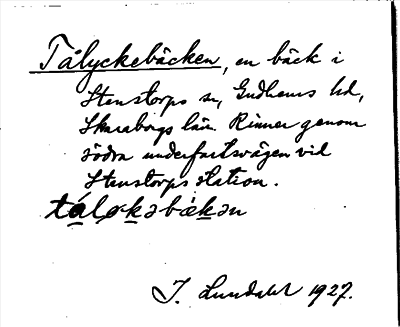 Tålyckebäcken, en bäck i
Stenstorps sn, Gudhems hd,
Skaraborgs län. Rinner genom
södra underfartsvägen vid
Stenstorps station.
tål​økəbäkən
J. Lundahl 1927.